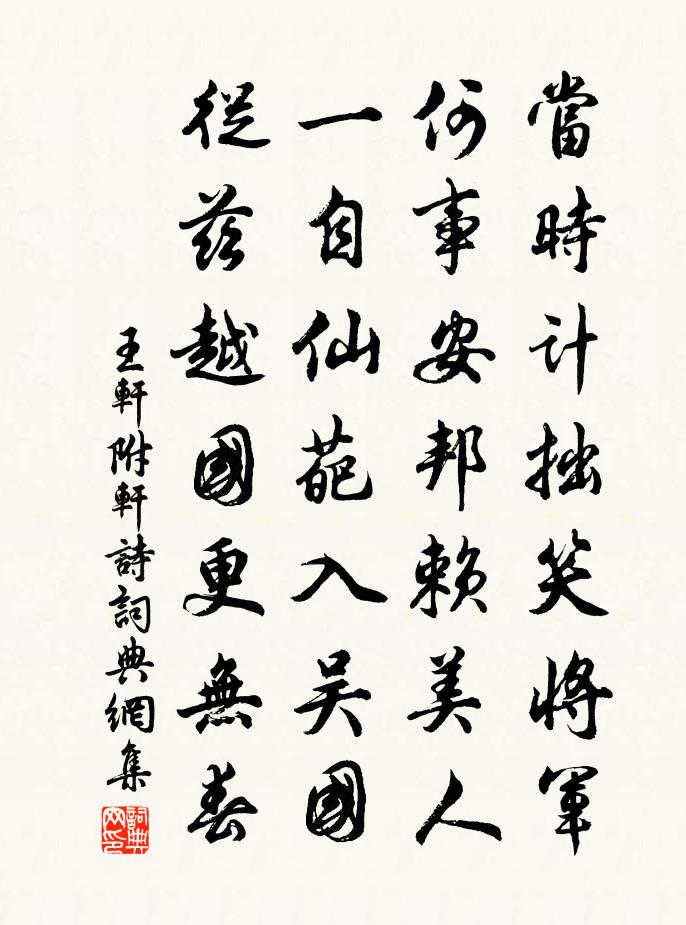 當時計拙笑將軍
何事安邦賴美人
一自仙葩入吴國
從兹越國更無春
王軒附軒詩詞典網集
詞典网印